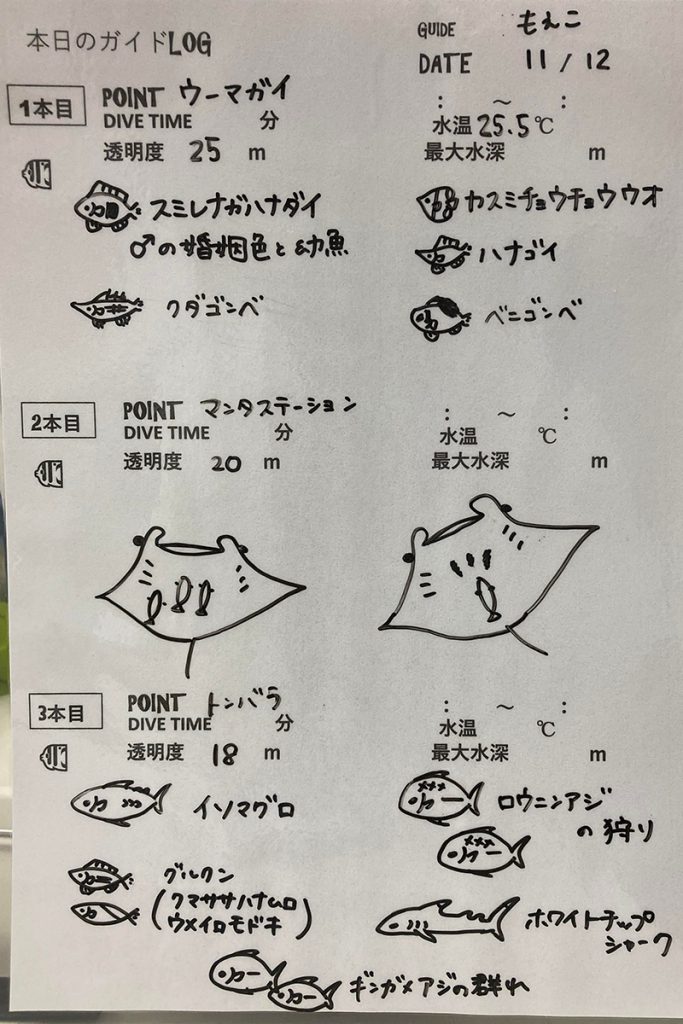 本日のガイドLOG
GUIDE もえこ
DATE 11 / 12
1本目 POINT ウーマガイ : ～ :
DIVE TIME 分 水温 25.5℃
透明度 25 m 最大水深 m
スミレナガハナダイ カスミチョウチョウウオ
♂の婚姻色と幼魚 ハナゴイ
クダゴンベ ベニゴンベ
2本目 POINT マンタステーション : ～ :
DIVE TIME 分 水温 ℃
透明度 20 m 最大水深 m
3本目 POINT トンバラ : ～ :
DIVE TIME 分 水温 ℃
透明度 18 m 最大水深 m
イソマグロ ロウニンアジ
の狩り
グルクン
(クマササハナムロ
ウメイロモドキ)
ホワイトチップ
シャーク
ギンガメアジの群れ